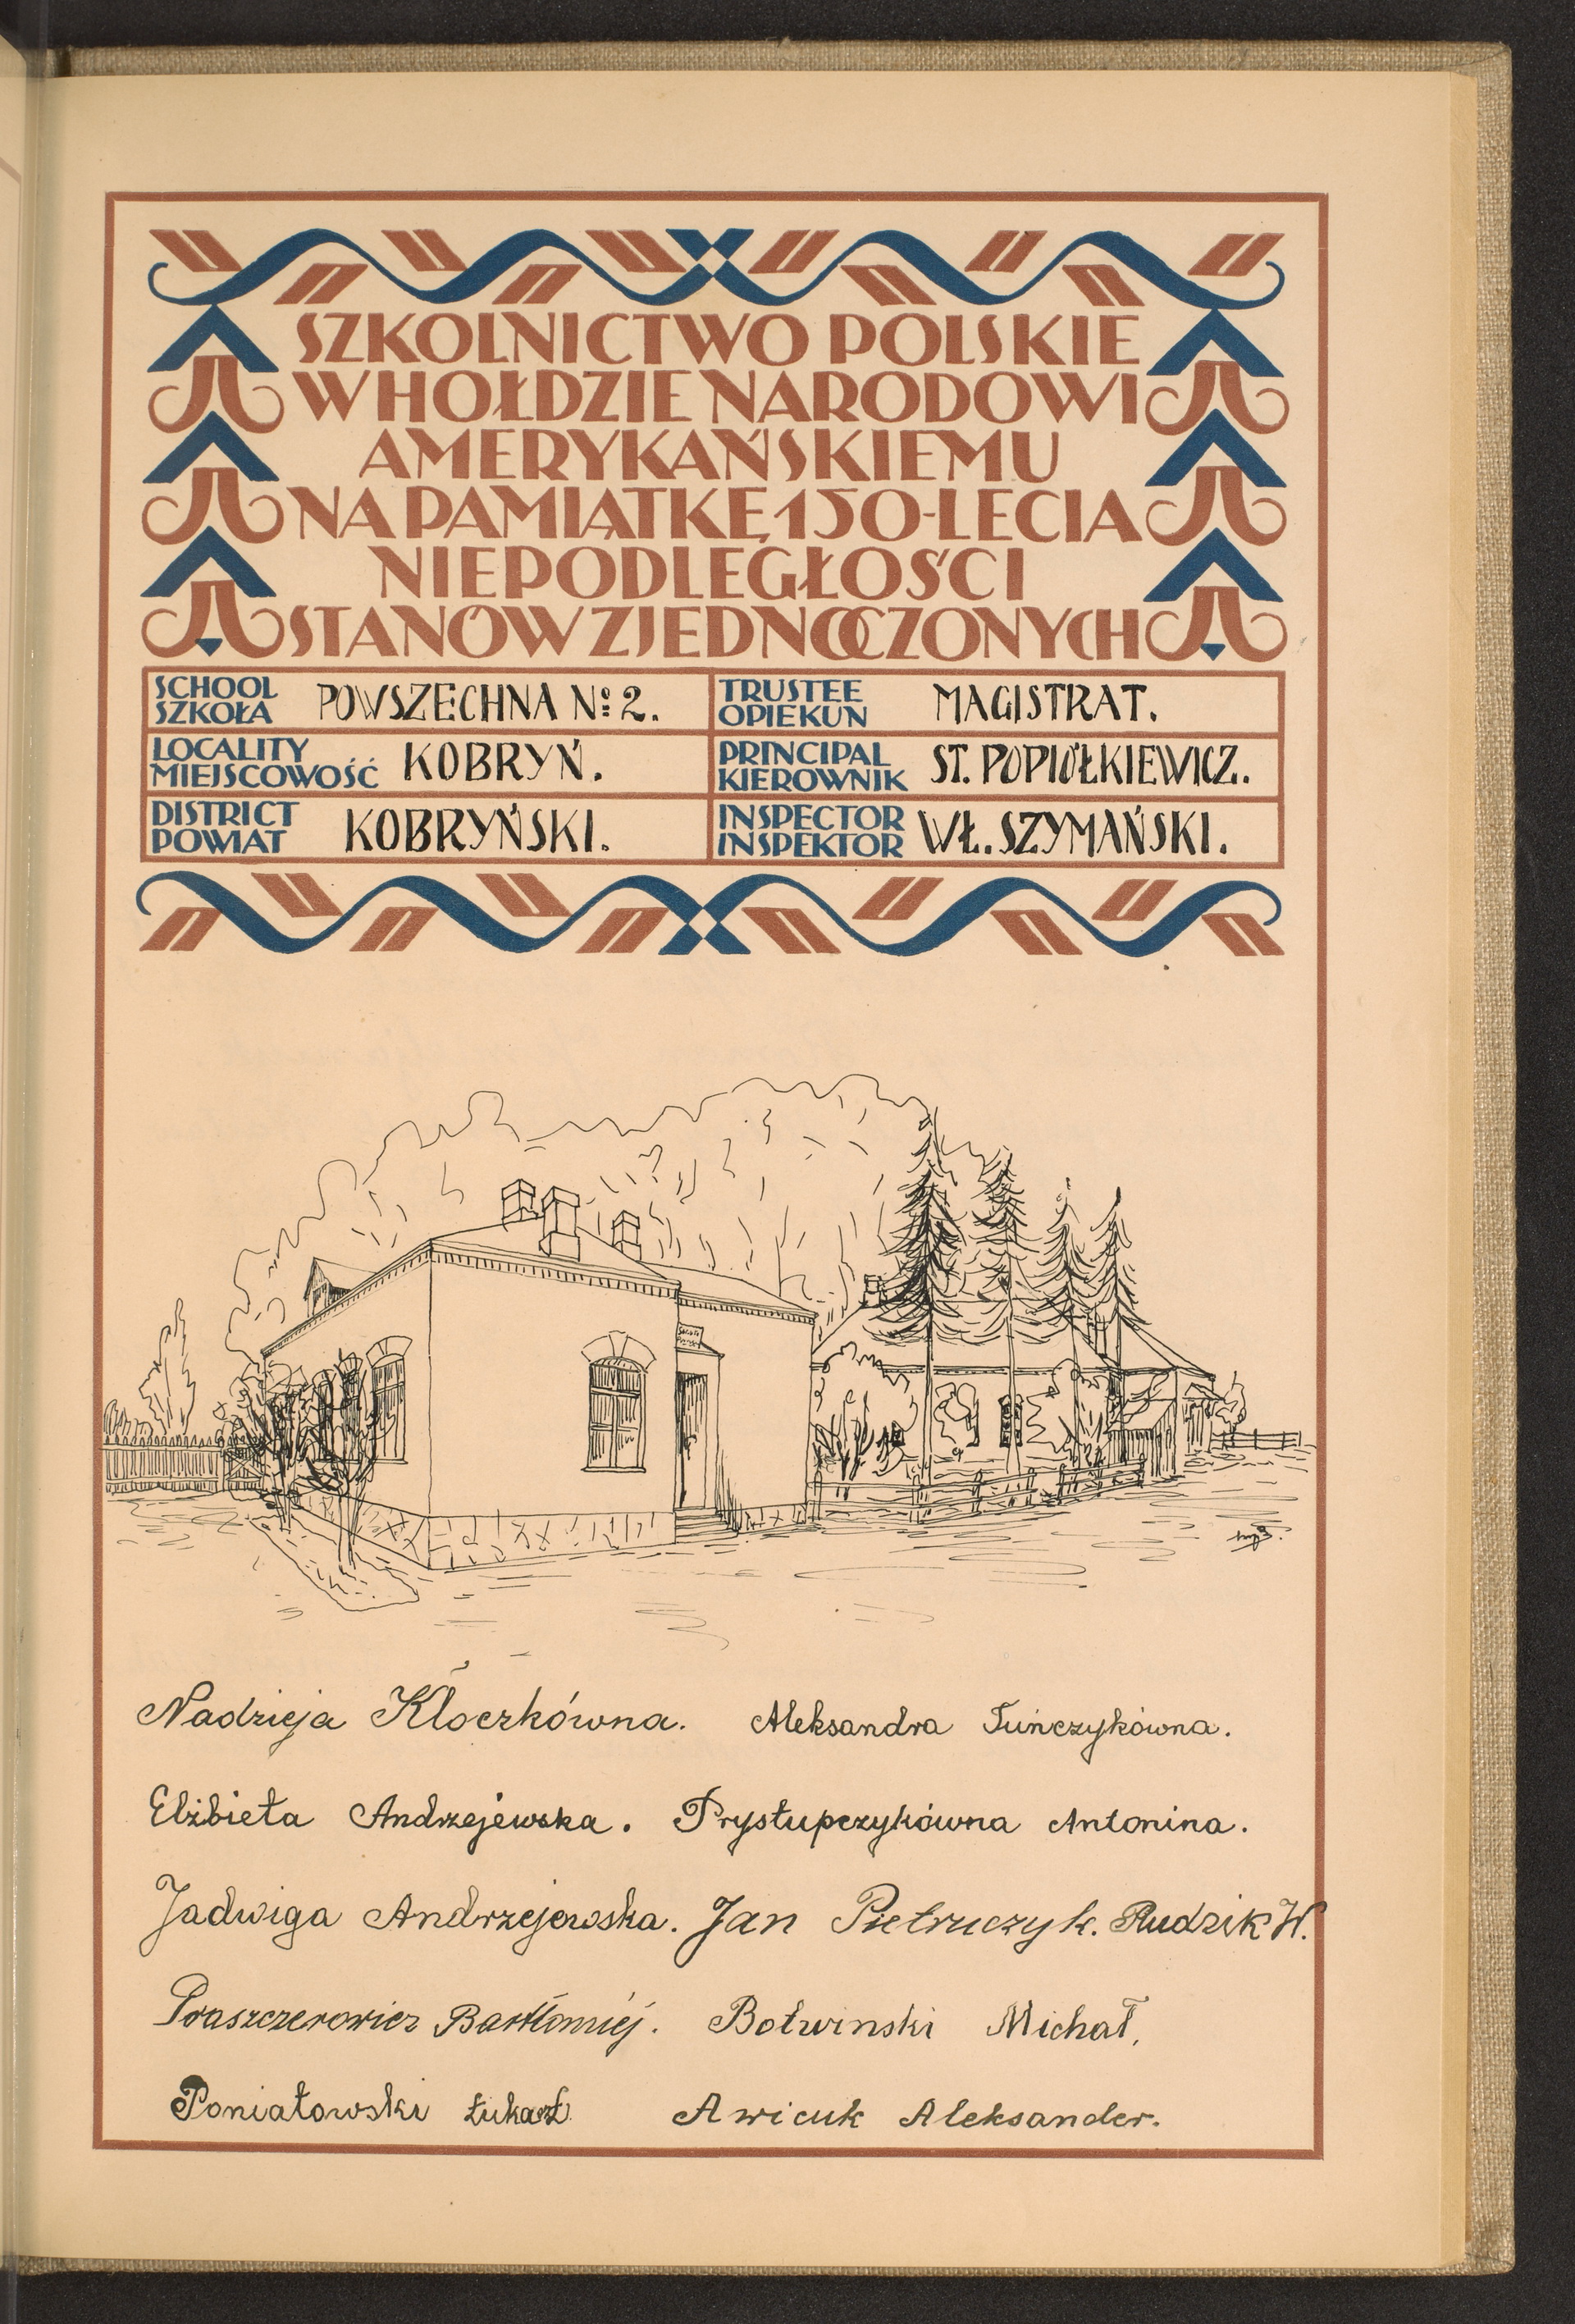 SZKOLNICTWO POLSKIE
W HOŁDZIE NARODOWI
AMERYKAŃSKIEMU
NA PAMIĄTKĘ 150-LECIA
NIEPODLEGŁOŚCI
STANÓW ZJEDNOCZONYCH
SCHOOL SZKOŁA POWSZECHNA No 2.
TRUSTEE OPIEKUN MAGISTRAT.
LOCALITY MIEJSCOWOŚĆ KOBRYŃ.
PRINCIPAL KIEROWNIK ST. POPIÓŁKIEWICZ.
DISTRICT POWIAT KOBRYŃSKI.
INSPECTOR INSPEKTOR WŁ. SZYMAŃSKI.
Nadzieja Kłoczkówna. Aleksandra Tuńczykówna.
Elżbieta Andrzejewska. Prystupczykówna Antonina.
Jadwiga Andrzejewska. Jan Pietruczyk. Rudzik W.
Praszczerowicz Bartłomiej. Botwinski Michał.
Poniatowski Łukasz Awicuk Aleksander.